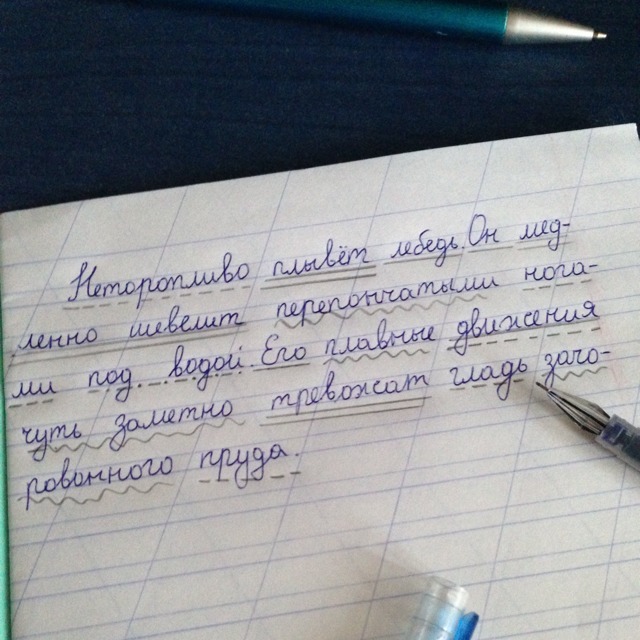 Неторопливо плывёт лебедь. Он мед-
ленно шевелит перепончатыми нога-
ми под водой. Его плавные движения
чуть заметно тревожат гладь зачо-
рованного пруда.